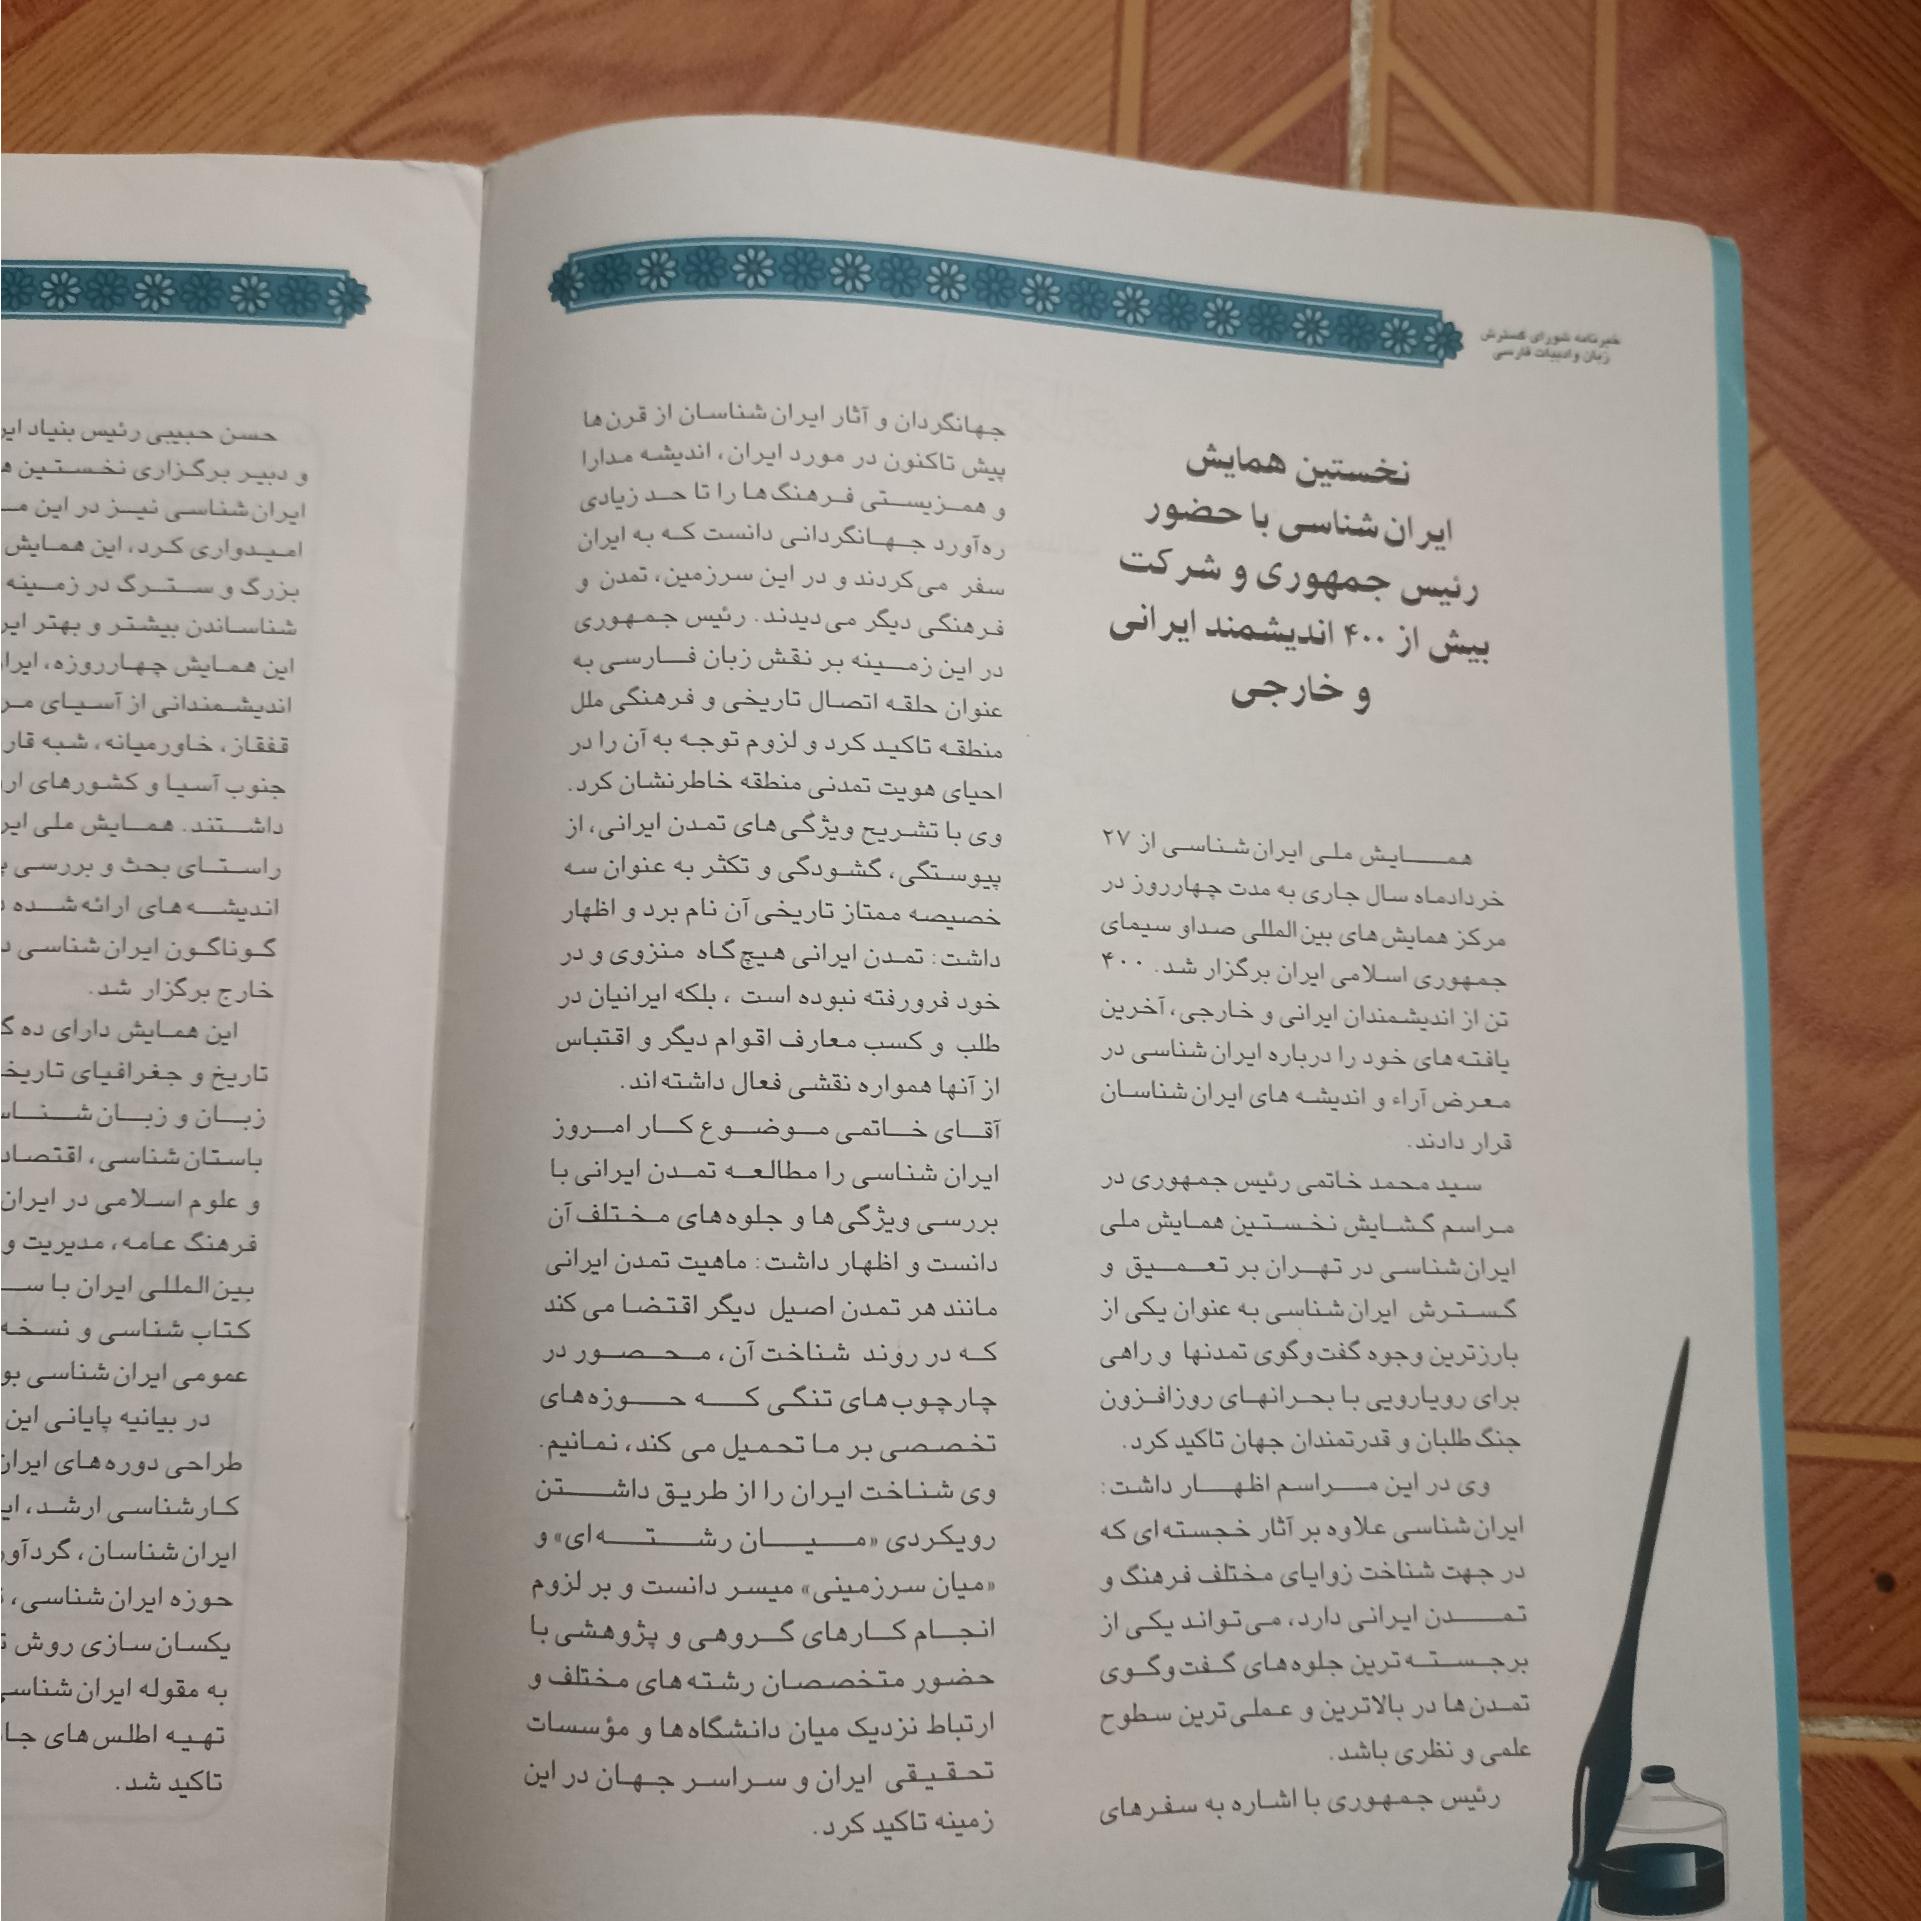 خبرنامه شورای گسترش
زبان و ادبیات فارسی
نخستین همایش
ایران‌شناسی با حضور
رئیس جمهوری و شرکت
بیش از ۴۰۰ اندیشمند ایرانی
و خارجی
همایش ملی ایران‌شناسی از ۲۷
خردادماه سال جاری به مدت چهارروز در
مرکز همایش‌های بین‌المللی صداو سیمای
جمهوری اسلامی ایران برگزار شد. ۴۰۰
تن از اندیشمندان ایرانی و خارجی، آخرین
یافته‌های خود را درباره ایران‌شناسی در
معرض آراء و اندیشه های ایران‌شناسان
قرار دادند.
سید محمد خاتمی رئیس جمهوری در
مراسم گشایش نخستین همایش ملی
ایران‌شناسی در تهران بر تعمیق و
گسترش ایران‌شناسی به عنوان یکی از
بارزترین وجوه گفت‌وگوی تمدنها و راهی
برای رویارویی با بحرانهای روزافزون
جنگ‌طلبان و قدرتمندان جهان تاکید کرد.
وی در این مراسم اظهار داشت:
ایران‌شناسی علاوه بر آثار خجسته‌ای که
در جهت شناخت زوایای مختلف فرهنگ و
تمدن ایرانی دارد، می‌تواند یکی از
برجسته‌ترین جلوه‌های گفت‌وگوی
تمدن‌ها در بالاترین و عملی‌ترین سطوح
علمی و نظری باشد.
رئیس جمهوری با اشاره به سفرهای
جهانگردان و آثار ایران‌شناسان از قرن‌ها
پیش تاکنون در مورد ایران، اندیشه مدارا
و همزیستی فرهنگ‌ها را تا حد زیادی
ره‌آورد جهانگردانی دانست که به ایران
سفر می‌کردند و در این سرزمین، تمدن و
فرهنگی دیگر می‌دیدند. رئیس جمهوری
در این زمینه بر نقش زبان فارسی به
عنوان حلقه اتصال تاریخی و فرهنگی ملل
منطقه تاکید کرد و لزوم توجه به آن را در
احیای هویت تمدنی منطقه خاطرنشان کرد.
وی با تشریح ویژگی‌های تمدن ایرانی، از
پیوستگی، گشودگی و تکثر به عنوان سه
خصیصه ممتاز تاریخی آن نام برد و اظهار
داشت: تمدن ایرانی هیچ‌گاه منزوی و در
خود فرورفته نبوده است ، بلکه ایرانیان در
طلب و کسب معارف اقوام دیگر و اقتباس
از آنها همواره نقشی فعال داشته‌اند.
آقای خاتمی موضوع کار امروز
ایران شناسی را مطالعه تمدن ایرانی با
بررسی ویژگی‌ها و جلوه‌های مختلف آن
دانست و اظهار داشت: ماهیت تمدن ایرانی
مانند هر تمدن اصیل دیگر اقتضا می کند
که در روند شناخت آن، محصور در
چارچوب‌های تنگی که حوزه‌های
تخصصی بر ما تحمیل می کند، نمانیم.
وی شناخت ایران را از طریق داشتن
رویکردی «میان رشته‌ای» و
«میان سرزمینی» میسر دانست و بر لزوم
انجام کارهای گروهی و پژوهشی با
حضور متخصصان رشته‌های مختلف و
ارتباط نزدیک میان دانشگاه‌ها و مؤسسات
تحقیقی ایران و سراسر جهان در این
زمینه تاکید کرد.
حسن حبیبی رئیس بنیاد
و دبیر برگزاری نخستین
ایران‌شناسی نیز در این
امیدواری کرد، این همایش
بزرگ و سترگ در زمینه
شناساندن بیشتر و بهتر
این همایش چهارروزه،
اندیشمندانی از آسیای
قفقاز، خاورمیانه، شبه
جنوب آسیا و کشورهای
داشتند. همایش ملی
راستای بحث و بررسی
اندیشه‌های ارائه‌شده
گوناگون ایران‌شناسی
خارج برگزار شد.
این همایش دارای ده
تاریخ و جغرافیای
زبان و
باستان‌شناسی،
و علوم اسلامی در ایران
فرهنگ عامه، مدیریت و
بین‌المللی ایران با
کتاب شناسی و
عمومی ایران‌شناسی
در بیانیه پایانی این
طراحی دوره‌های
کارشناسی ارشد،
ایران‌شناسان،
حوزه ایران‌شناسی،
یکسان‌سازی روش
به مقوله
تهیه اطلس‌های
تاکید شد.